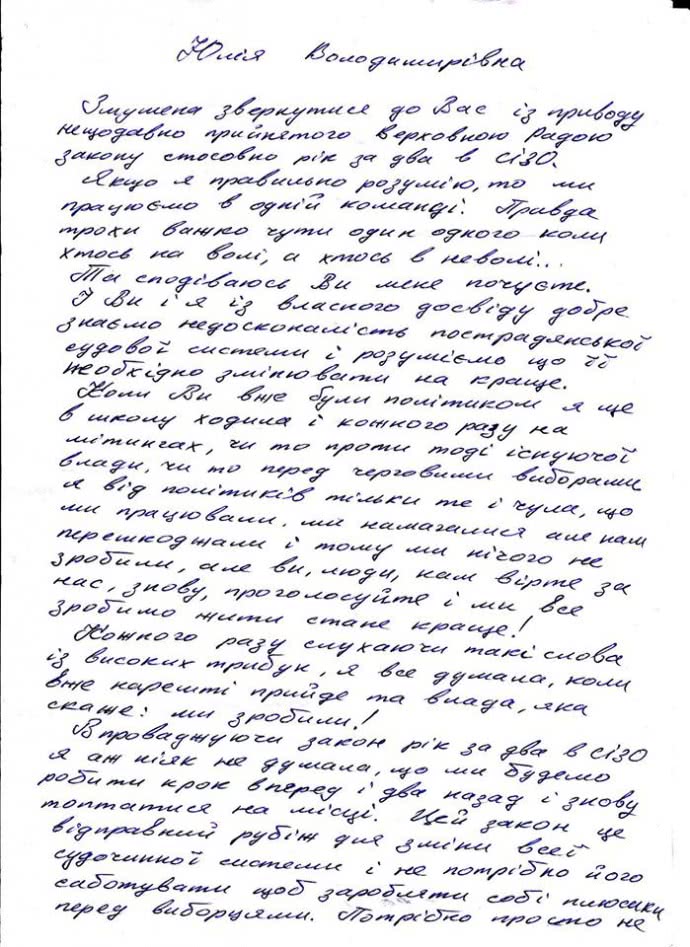 Юлія Володимирівна
Змушена звернутися до Вас із приводу
нещодавно прийнятого Верховною Радою
закону стосовно рік за два в СІЗО.
Якщо я правильно розумію, то ми
працюємо в одній команді. Правда
трохи важко чути один одного коли
хтось на волі, а хтось в неволі...
Та сподіваюсь Ви мене почуєте.
І Ви і я із власного досвіду добре
знаємо недосконалість пострадянської
судової системи і розуміємо що її
необхідно змінювати на краще.
Коли Ви вже були політиком я ще
в школу ходила і кожного разу на
мітингах, чи то проти тоді існуючої
влади, чи то перед черговими виборами
я від політиків тільки те і чула, що
ми працювали. ми намагалися але нам
перешкоджали і тому ми нічого не
зробили, але ви, люди, нам вірте за
нас, знову, проголосуйте і ми все
зробимо жити стане краще!
Кожного разу слухаючи такі слова
із високих трибун, я все думала, коли
вже нарешті прийде та влада, яка
скаже: ми зробили!
Впроваджуючи закон рік за два в СІЗО
я аж ніяк не думала, що ми будемо
робити крок вперед і два назад і знову
топтатися на місці. Цей закон це
відправний рубіж для зміни всеї
судочинної системи і не потрібно його
саботувати щоб заробляти собі плюсики
перед виборцями. Потрібно просто не